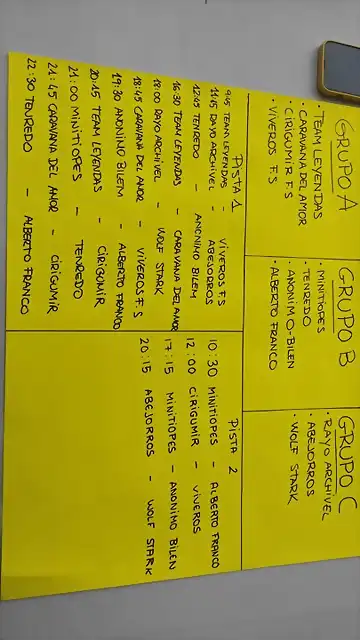 GRUPO A
· TEAM LEYENDAS
· CARAVANA DEL AMOR
· CIRIGUMIR F.S
· VIVEROS F.S
GRUPO B
· MINITIOPES
· TENREDO
· ANONIMO-BILEN
· ALBERTO FRANCO
GRUPO C
· RAYO ARCHIVEL
· ABEJORROS
· WOLF STARK
PISTA 1
9:45 TEAM LEYENDAS - VIVEROS F.S
11:15 RAYO ARCHIVEL - ABEJORROS
12:45 TENREDO - ANONIMO BILEM
16:30 TEAM LEYENDAS - CARAVANA DEL AMOR
18:00 RAYO ARCHIVEL - WOLF STARK
18:45 CARAVANA DEL AMOR - VIVEROS F.S
19:30 ANONINO BILEM - ALBERTO FRANCO
20:15 TEAM LEYENDAS - CIRIGUMIR
21:00 MINITIOPES - TENREDO
21:45 CARAVANA DEL AMOR - CIRIGUMIR
22:30 TENREDO - ALBERTO FRANCO
PISTA 2
10:30 MINITIOPES - ALBERTO FRANCO
12:00 CIRIGUMIR - VIVEROS
17:15 MINITIOPES - ANONIMO BILEN
20:15 ABEJORROS - WOLF STARK